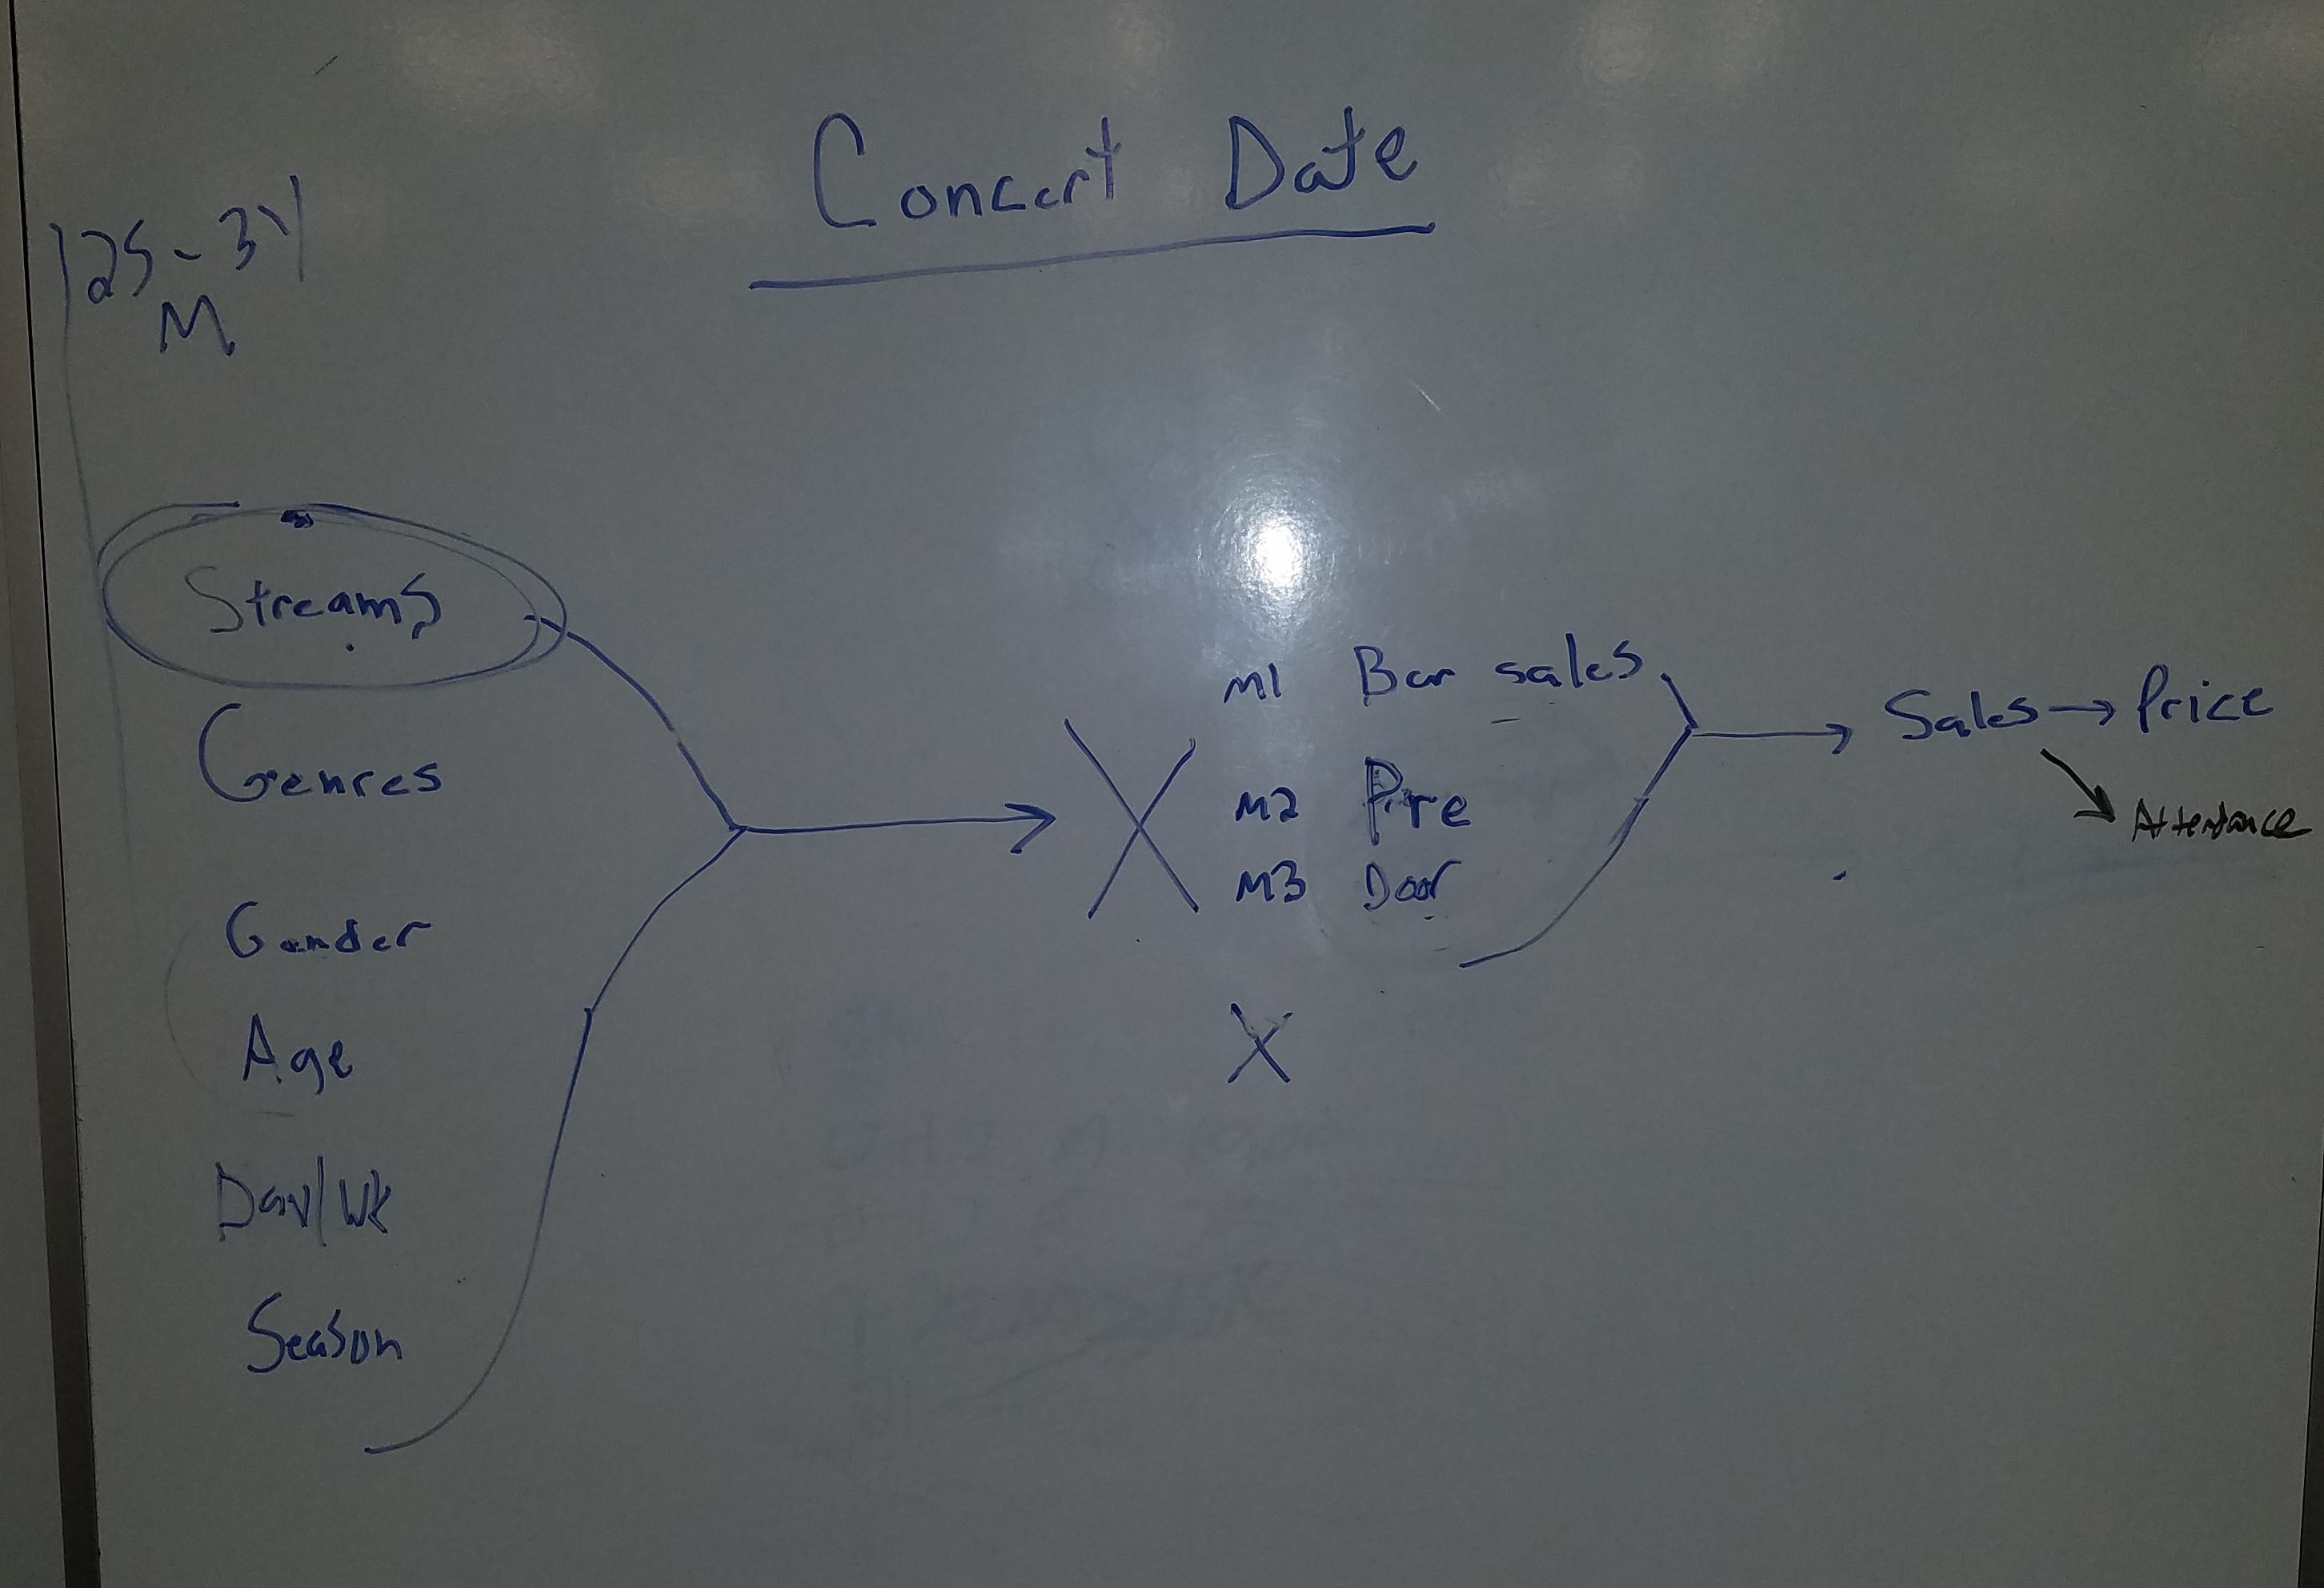 Concert Date
|25-34|
M
Streams
Genres
Gender
Age
Day/Wk
Season
X
M1 Bar sales
M2 Pre
M3 Door
X
Sales → Price
Attendance